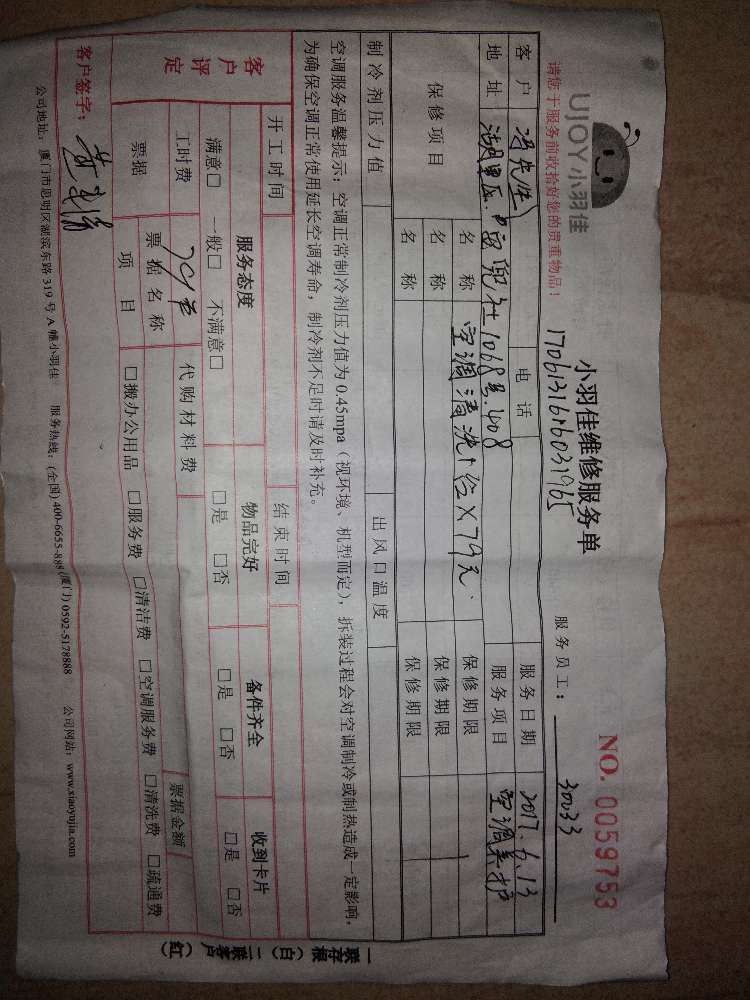 UJOY小羽佳
小羽佳维修服务单
NO. 0059753
请您于服务前收拾好您的贵重物品！
服务员工： 30033
客户 冯先生 电话 服务日期 2017.6.13
地址 湖里区 安兜社1068号408 服务项目 空调养护
保修项目 名称 空调清洗1台×79元 保修期限
名称 保修期限
名称 保修期限
制冷剂压力值 出风口温度
空调服务温馨提示：空调正常制冷剂压力值为0.45mpa（视环境、机型而定），拆装过程会对空调制冷或制热造成一定影响，
为确保空调正常使用延长空调寿命，制冷剂不足时请及时补充。
开工时间 结束时间
客户评定 服务态度 物品完好 备件齐全 收到卡片
满意□ 一般□ 不满意□ □是 □否 □是 □否 □是 □否
工时费 79元 代购材料费
票据 票据名称 票据金额
项目 □搬办公用品 □服务费 □清洁费 □空调服务费 □清洗费 □疏通费
客户签字：
公司地址：厦门市思明区湖滨东路319号A幢小羽佳 服务热线：(全国) 400-6655-888(厦门) 0592-5178888 公司网站：www.xiaoyujia.com
一联存根（白）二联客户（红）